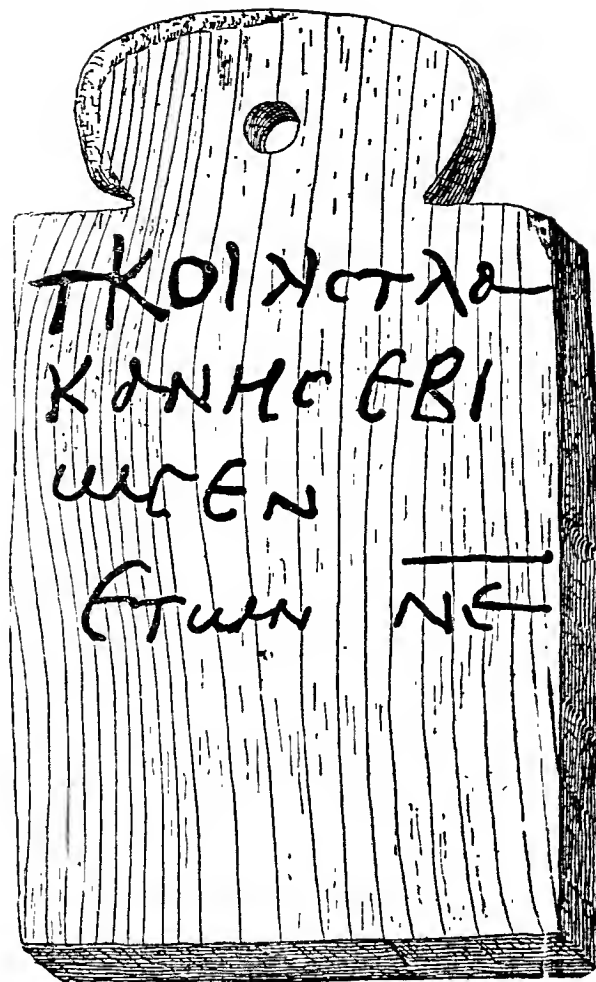 ΤΚΟΙΗϹΤΛΑ
ΚΑΝΗϹ ΕΒΙ
ΩϹΕΝ
ΕΤΩΝ Ν̅Ε̅